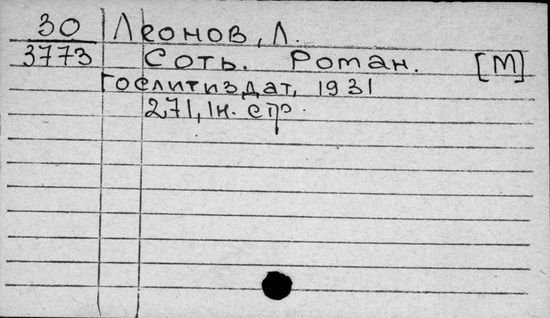 30 Леонов, Л.
3773 Соть. Роман. [М]
Гослитиздат, 1931
271, 1н. стр.